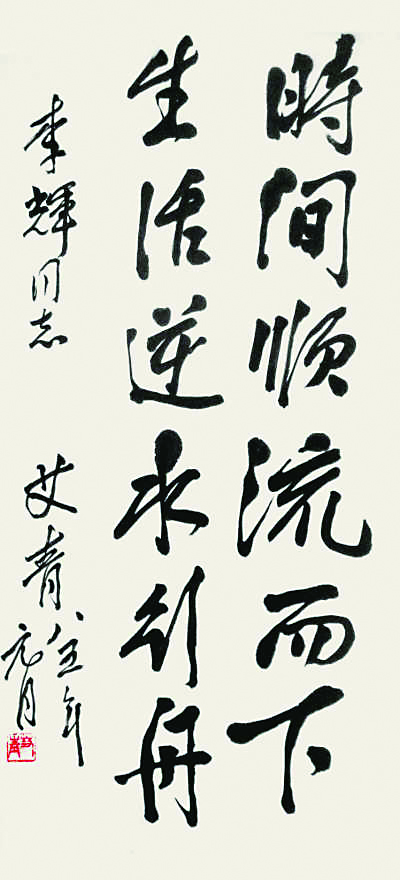 時间顺流而下
生活逆水行舟
李輝同志
艾青
八五年
元月